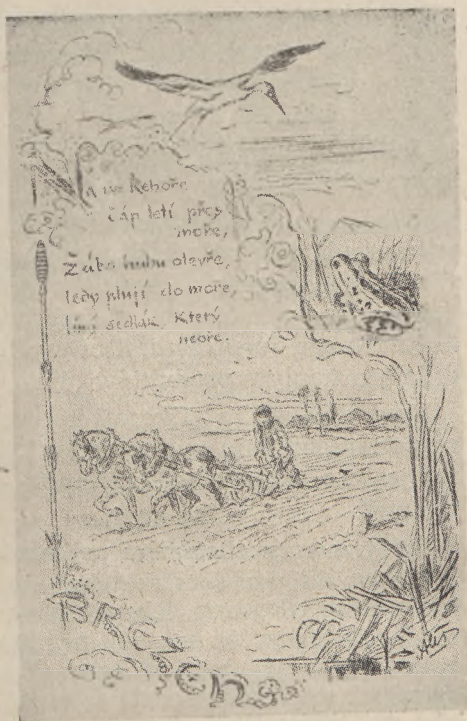 Na sv. Řehoře
čáp letí přes
moře,
Žába hubu otevře,
ledy plují do moře,
líný sedlák, který
neoře.
BŘEZEN
Aleš